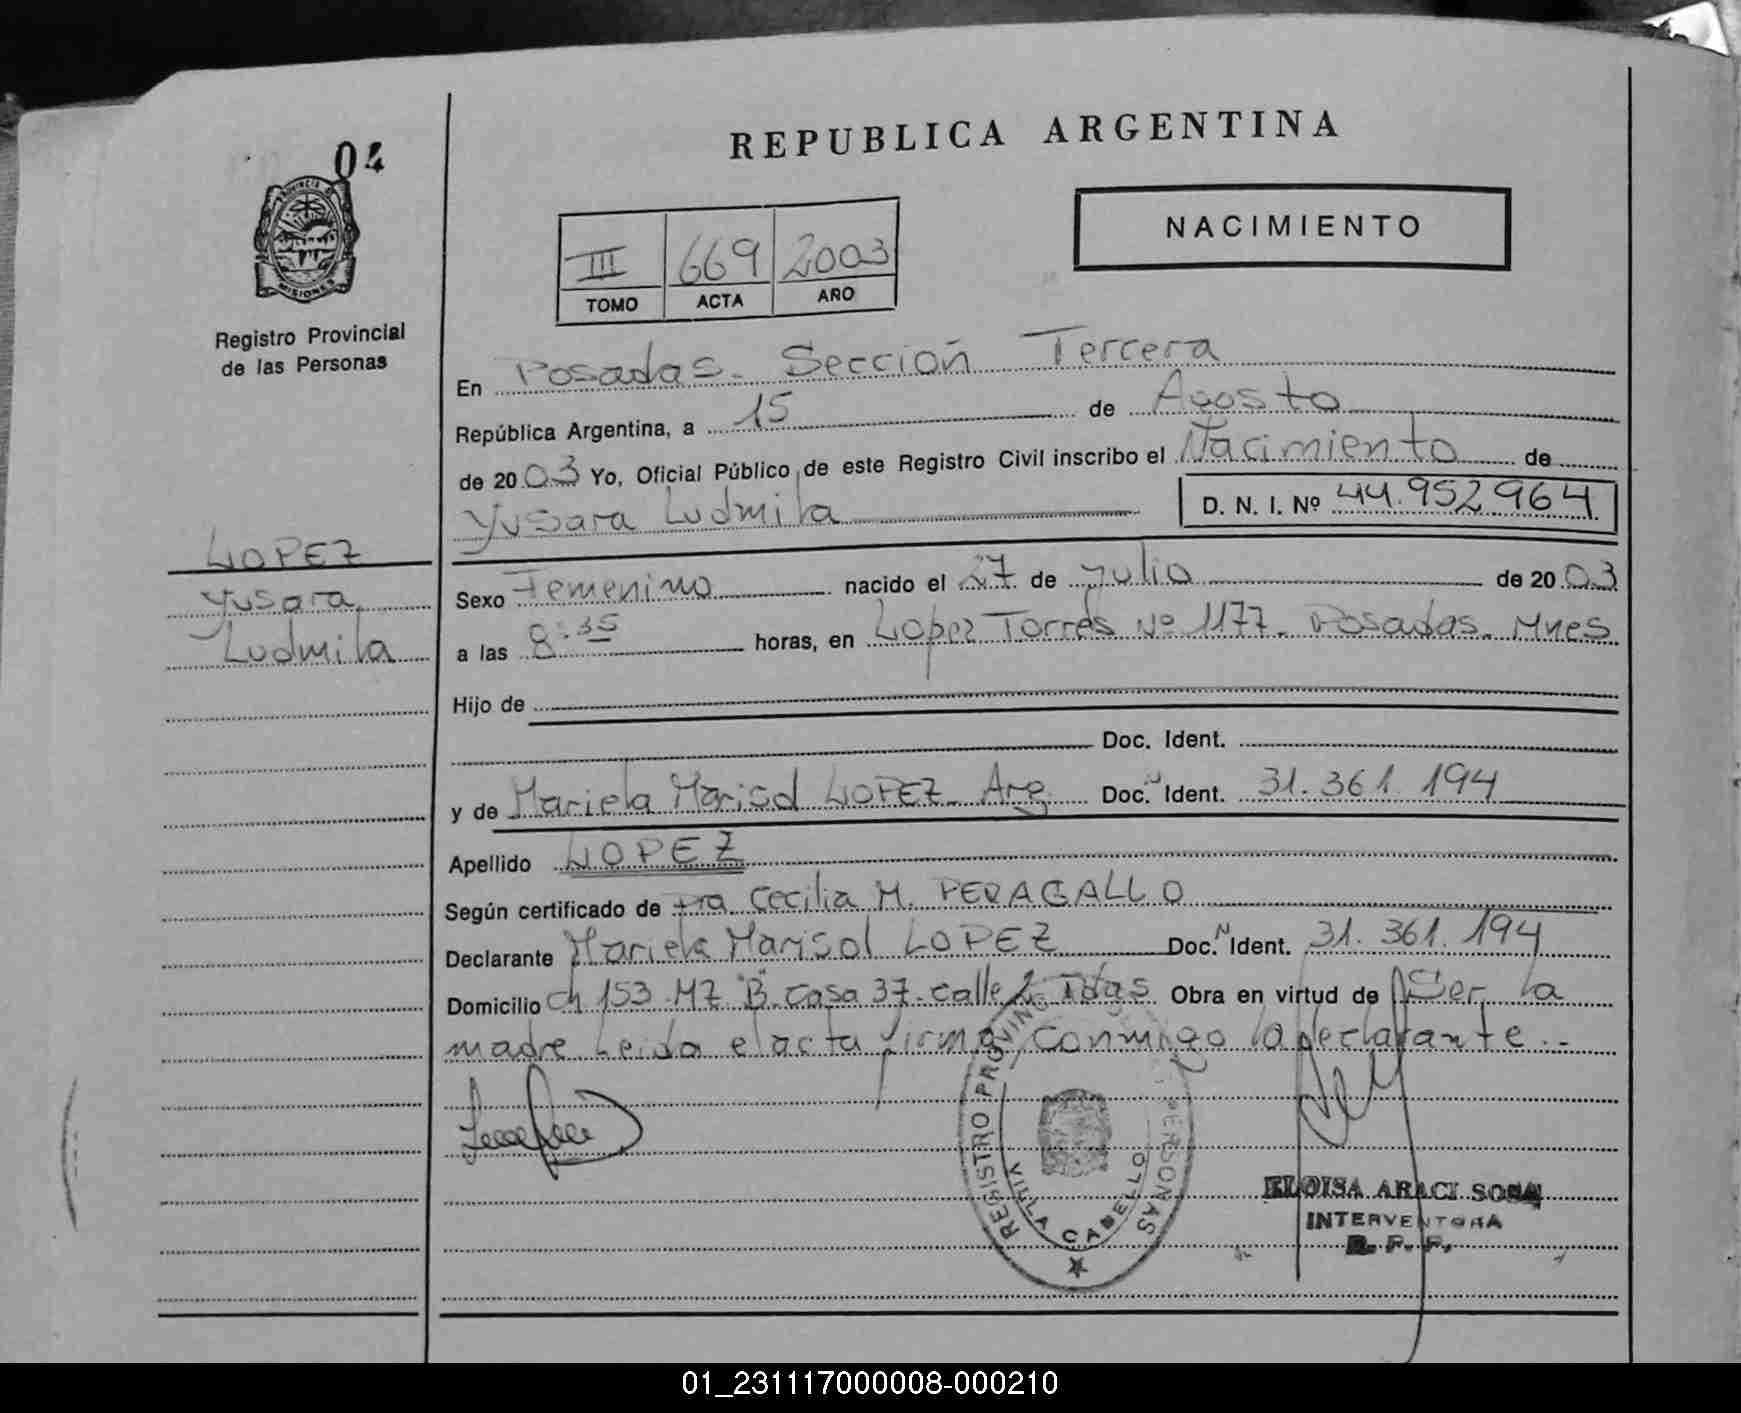 04
PROVINCIA DE
MISIONES
Registro Provincial
de las Personas
REPUBLICA ARGENTINA
NACIMIENTO
III 669 2003
TOMO ACTA AÑO
En Posadas. Sección Tercera
República Argentina, a 15 de Agosto
de 2003 Yo, Oficial Público de este Registro Civil inscribo el Nacimiento de
Yusara Ludmila D. N. I. Nº 44.952.964
LOPEZ
Yusara
Ludmila
Sexo Femenino nacido el 27 de Julio de 2003
a las 8:35 horas, en Lopez Torres Nº 1177. Posadas. Mnes
Hijo de
Doc. Ident.
y de Mariela Marisol LOPEZ. Arg. Doc. N Ident. 31.361.194
Apellido LOPEZ
Según certificado de Dra Cecilia M. PERAGALLO
Declarante Mariela Marisol LOPEZ Doc. N Ident. 31.361.194
Domicilio Ch 153 MZ "B" Casa 37. calle Pdas Obra en virtud de Ser la
madre Leida el acta firma conmigo la declarante..
REGISTRO PROVINCIAL PERSONAS
VILLA CABELLO
ELOISA ARACI SOSA
INTERVENTORA
R. P. P.
01_231117000008-000210